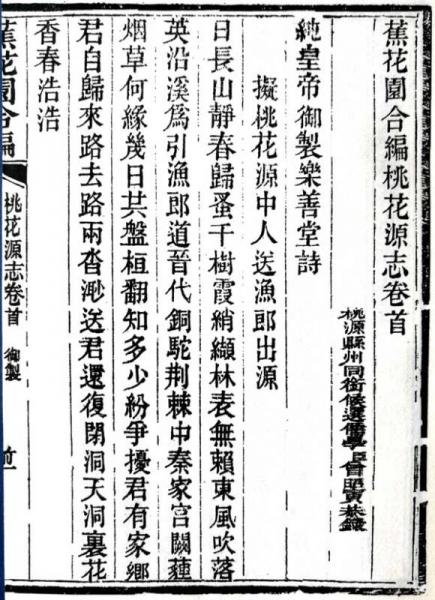 蕉花園合編桃花源志卷首
桃源縣州同銜候選儒學曾昭寅恭錄
純皇帝御製樂善堂詩
擬桃花源中人送漁郎出源
日長山靜春歸蚤千樹霞綃纈林表無賴東風吹落
英沿溪爲引漁郎道晉代銅駝荆棘中秦家宫闕薶
烟草何緣幾日共盤桓翻知多少紛爭擾君有家鄉
君自歸來路去路兩杳渺送君還復閉洞天洞裏花
香春浩浩
蕉花園合編
桃花源志卷首
御製